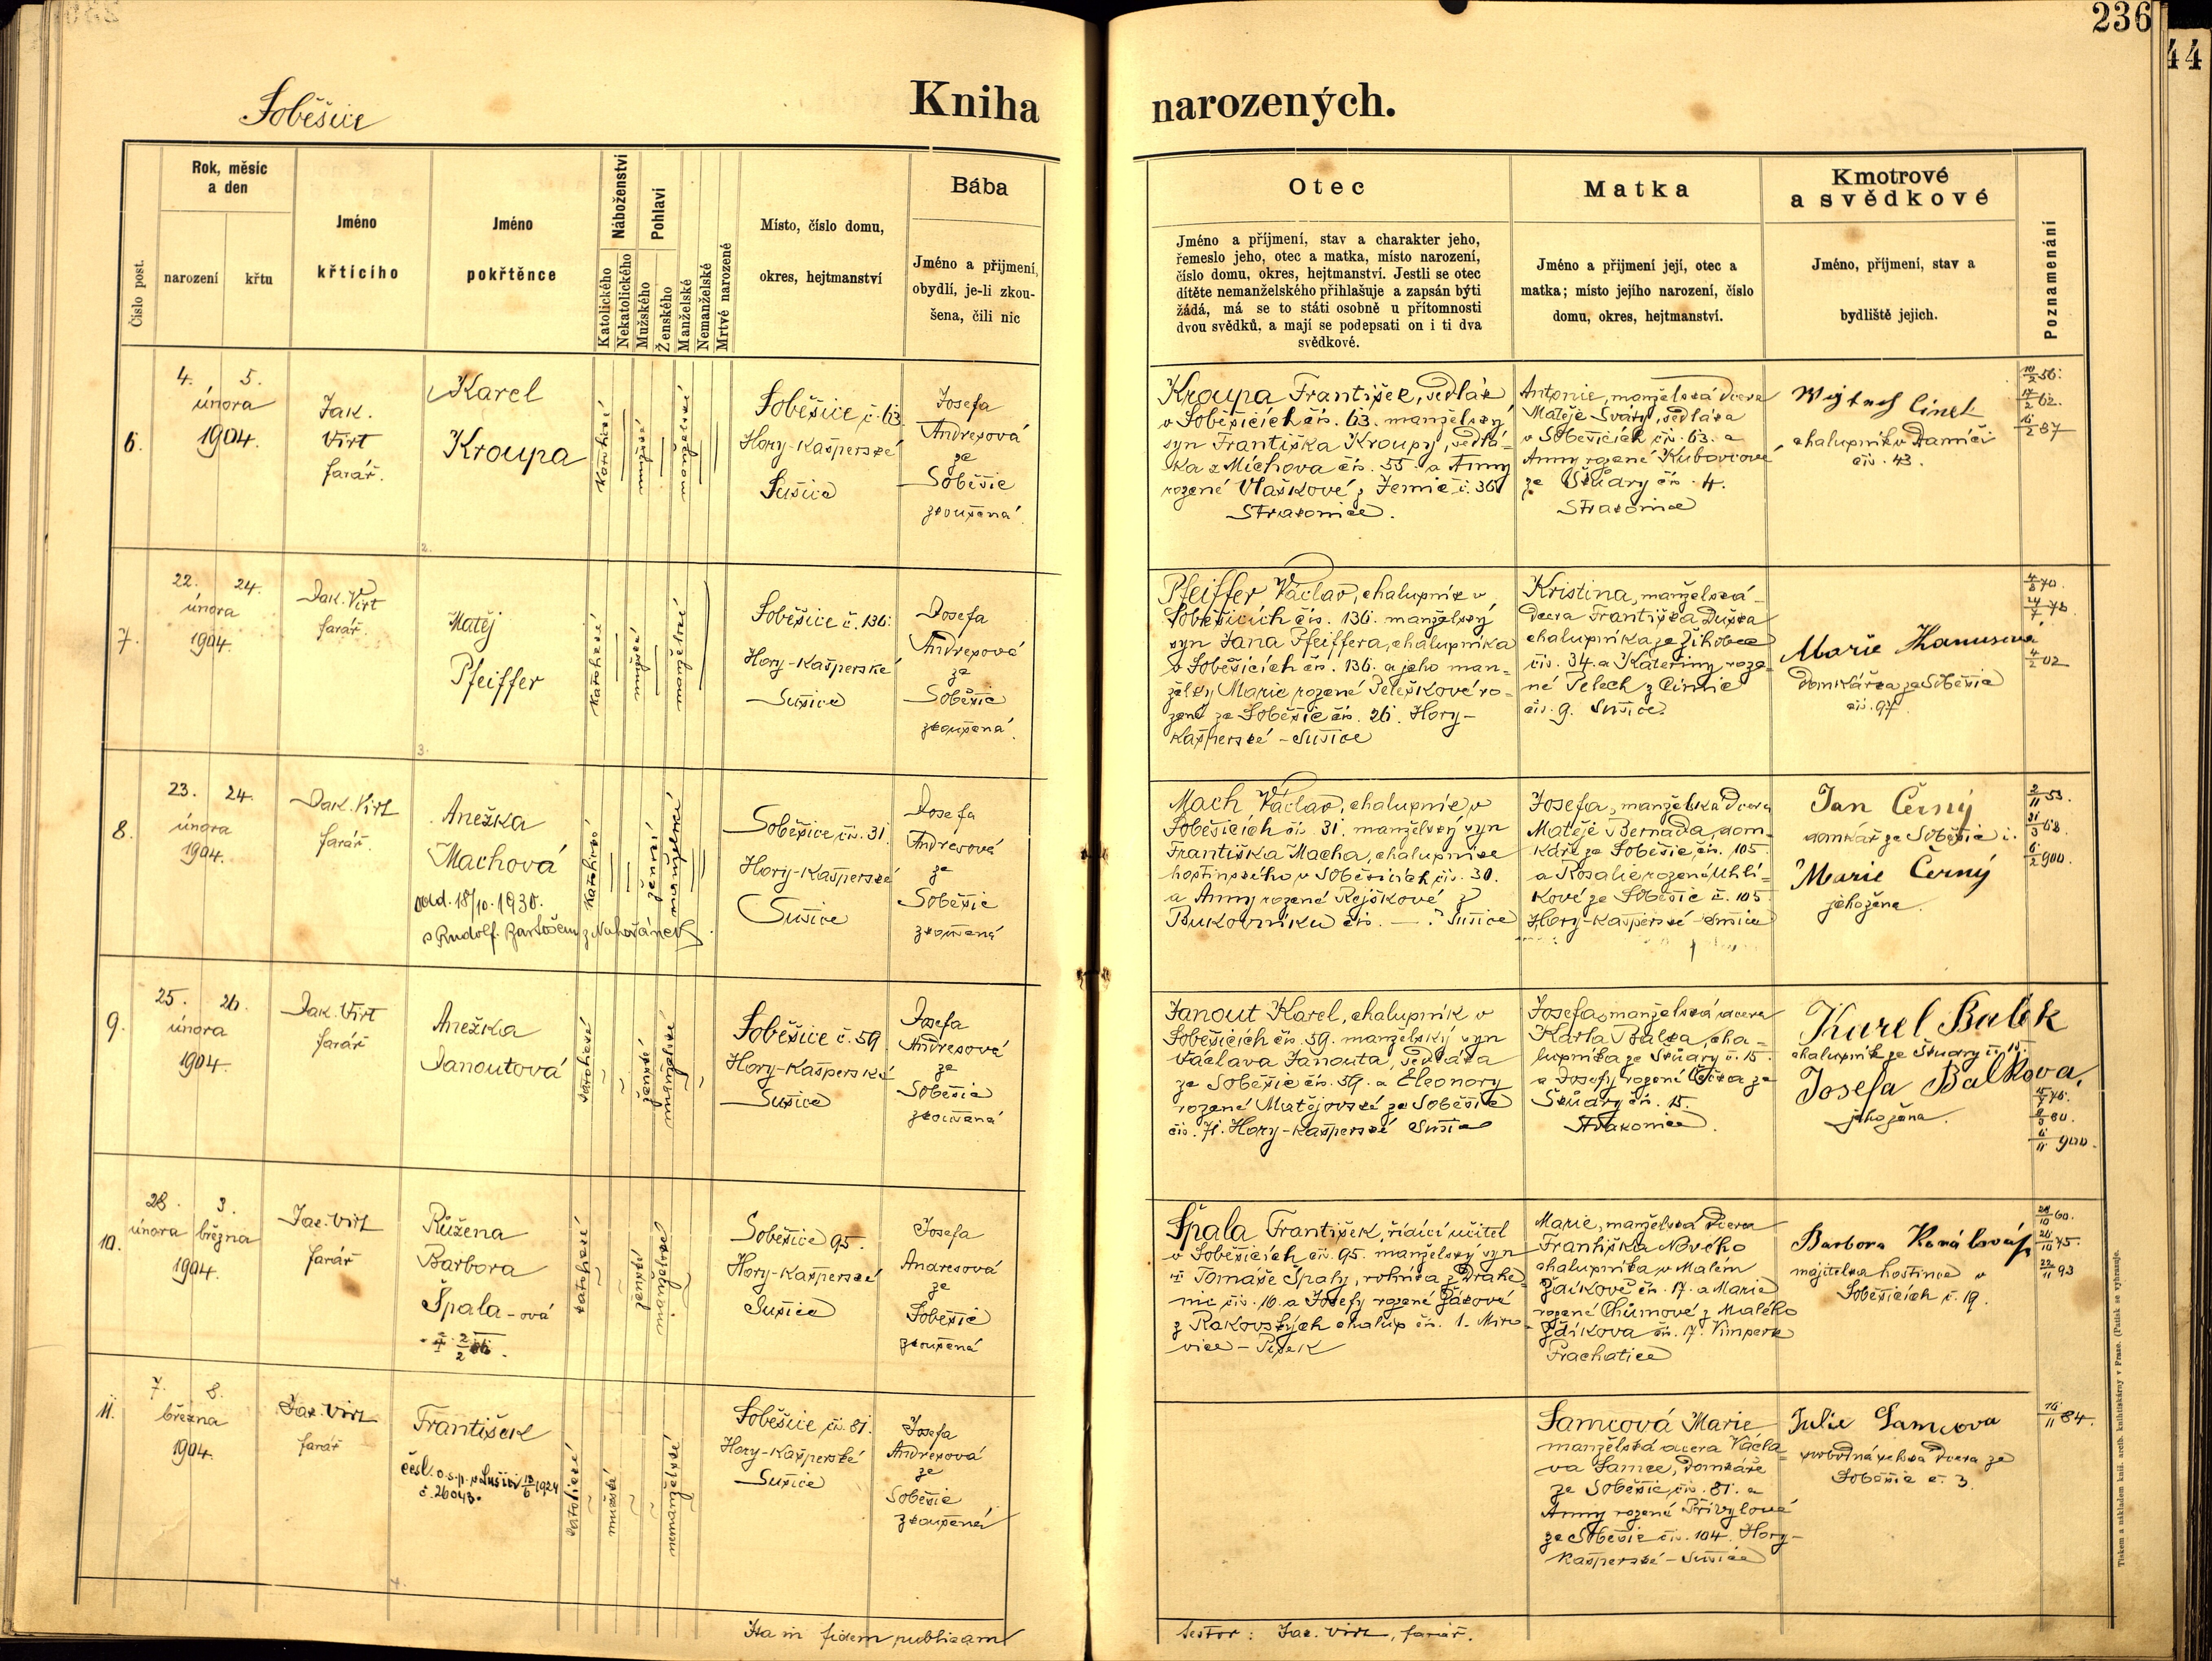 236
44
Soběšice
Kniha narozených.
Číslo post.
Rok, měsíc
a den
narození
křtu
Jméno
křtícího
Jméno
pokřtěnce
Náboženství
Katolického
Nekatolického
Pohlaví
Mužského
Ženského
Manželské
Nemanželské
Mrtvě narozené
Místo, číslo domu,
okres, hejtmanství
Bába
Jméno a přijmení,
obydlí, je-li zkou-
šena, čili nic
Otec
Jméno a příjmení, stav a charakter jeho,
řemeslo jeho, otec a matka, místo narození,
číslo domu, okres, hejtmanství. Jestli se otec
dítěte nemanželského přihlašuje a zapsán býti
žádá, má se to státi osobně u přítomnosti
dvou svědků, a mají se podepsati on i ti dva
svědkové.
Matka
Jméno a přijmení její, otec a
matka; místo jejího narození, číslo
domu, okres, hejtmanství.
Kmotrové
a svědkové
Jméno, příjmení, stav a
bydliště jejich.
Poznamenání
6.
4. 5.
února
1904.
Jak.
Virt
farář.
Karel
Kroupa
katolické
mužské
manželské
Soběšice č. 63
Hory-Kašperské
Sušice
Josefa
Andrexová
ze
Soběšic
zkoušená
Kroupa František, sedlák
v Soběšicích čís. 63. manželský
syn Františka Kroupy, sedlá-
ka z Míchova čís. 55. a Anny
rozené Vlaškové z Zemic č. 36
Strakonice.
Antonie, manželská dcera
Matěje Sváty, sedláka
v Soběšicích čís. 63. a
Anny rozené Kubovcové
ze Škůdry čís. 4.
Strakonice
Wojtech Cinek
chalupník v Damíči
čís. 43.
7.
22. 24.
února
1904.
Jak. Virt
farář.
Matěj
Pfeiffer
katolické
mužské
manželské
Soběšice č. 136:
Hory-Kašperské
Sušice
Josefa
Andrexová
ze
Soběšic
zkoušená.
Pfeiffer Václav, chalupník v
Soběšicích čís. 136. manželský
syn Jana Pfeiffera, chalupníka
v Soběšicích čís. 136. a jeho man-
želky Marie rozené Peleškové ro-
zené ze Soběšic čís. 26. Hory-
Kašperské - Sušice
Kristina, manželská
dcera Františka Duška
chalupníka ze Žihobce
čís. 34. a Kateřiny roze-
né Pelech z Čimic
čís. 9. Sušice.
Marie Hanusová
domkářka ze Soběšic
čís. 97
8.
23. 24.
února
1904.
Jak. Virt
farář.
Anežka
Machová
odd. 18/10. 1930.
s Rudolf. Bartošem z Nahořánek
katolické
ženské
manželské
Soběšice čís. 31
Hory-Kašperské
Sušice
Josefa
Andrexová
ze
Soběšic
zkoušená
Mach Václav, chalupník v
Soběšicích čís. 31. manželský syn
Františka Macha, chalupníka
hostinského v Soběšicích čís. 30.
a Anny rozené Rejškové z
Bukovníku čís. — . Sušice
Josefa, manželská dcera
Matěje Bernada, dom-
káře ze Soběšic čís. 105
a Rosalie rozené Uhlí-
kové ze Soběšic č. 105
Hory-Kašperské - Sušice
Jan Černý
domkář ze Soběšic
Marie Černý
jeho žena
9.
25. 26.
února
1904.
Jak. Virt
farář
Anežka
Janoutová
katolické
ženské
manželské
Soběšice č. 59
Hory-Kašperské
Sušice
Josefa
Andrexová
ze
Soběšic
zkoušená
Janout Karel, chalupník v
Soběšicích čís. 59. manželský syn
Václava Janouta, sedláka
ze Soběšic čís. 59. a Eleonory
rozené Matějovské ze Soběšic
čís. 71. Hory-Kašperské Sušice
Josefa, manželská dcera
Karla Balka, cha-
lupníka ze Škůdry č. 15
a Josefy rozené ze
Škůdry čís. 15.
Strakonice.
Karel Balek
chalupník ze Škudry č. 15.
Josefa Balkova,
jeho žena.
10.
28. 3.
února března
1904.
Jak. Virt
farář
Růžena
Barbora
Špala-ová
katolické
ženské
manželské
Soběšice 95.
Hory-Kašperské
Sušice
Josefa
Andrexová
ze
Soběšic
zkoušená
Špala František, řídící učitel
v Soběšicích čís. 95. manželský syn
Tomáše Špaly, rolníka z Drahe-
nic čís. 16. a Josefy rozené Žákové
z Rakovských chalup čís. 1. Miro-
vice - Písek
Marie, manželská dcera
Františka Nového
chalupníka v Malém
Ždíkově čís. 17. a Marie
rozené Chůmové z Malého
Ždíkova čís. 17. Vimperk
Prachatice
Barbora Kovářová
majitelka hostince v
Soběšicích č. 19.
11.
7. 8.
března
1904.
Jak. Virt
farář
František
česl. o.s.p. v Sušici 13/6 1924
č. 26043.
katolické
mužské
nemanželské
Soběšice čís. 81.
Hory-Kašperské
Sušice
Josefa
Andrexová
ze
Soběšic
zkoušená
Samcová Marie
manželská dcera Václa-
va Samce, domkáře
ze Soběšic čís. 81. a
Anny rozené Přibylové
ze Soběšic čís. 104. Hory-
Kašperské - Sušice
Julie Samcova
svobodná dcera ze
Soběšic č. 3.
Ita in fidem publicam
testor: Jak. Virt, farář.
Tiskem a nákladem kníž. arcib. knihtiskárny v Praze. (Patisk se vyhrazuje.